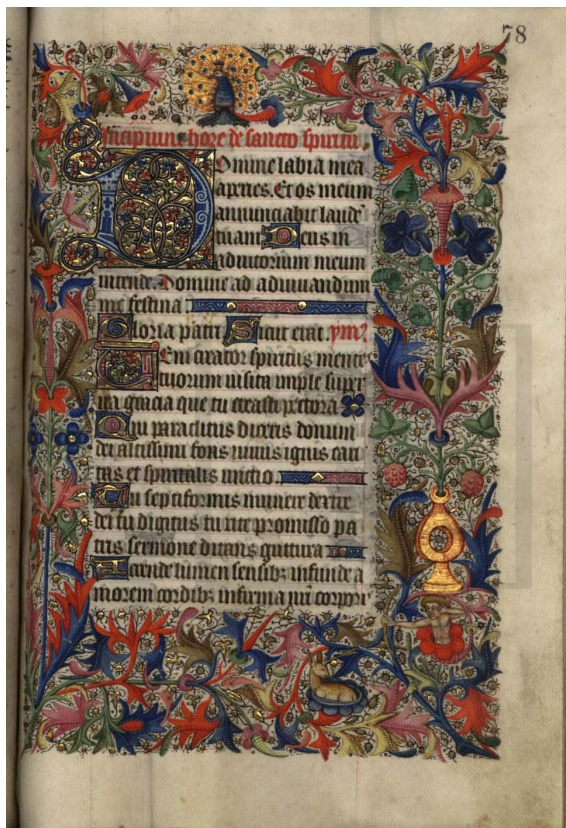 78
Incipiunt hore de sancto spiritu.
Domine labia mea
aperies. Et os meum
annunciabit laudē
tuam Deus in
adiutorium meum
intende. Domine ad adiuuandum
me festina
Gloria patri Sicut erat. ym̄
Veni creator spiritus mente
tuorum uisita imple super
na gracia que tu creasti pectora
Qui paraclitus diceris donum
dei altissimi fons uiuus ignis cari
tas et spiritalis unctio.
Tu septiformis munere dextre
dei tu digitus tu rite promisso pa
tris sermone ditans guttura
Accende lumen sensibꝫ infunde a
morem cordibꝫ infirma nrī corpori